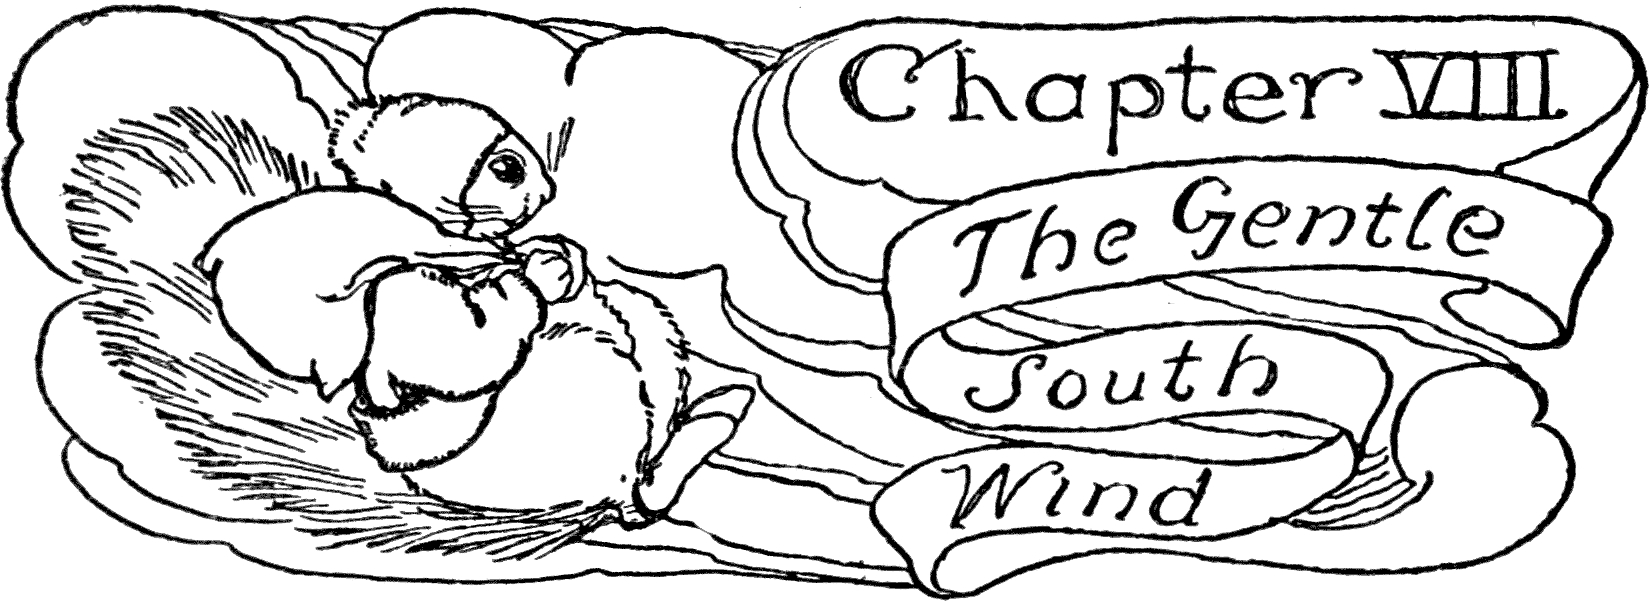 Chapter VIII
The Gentle
South
Wind